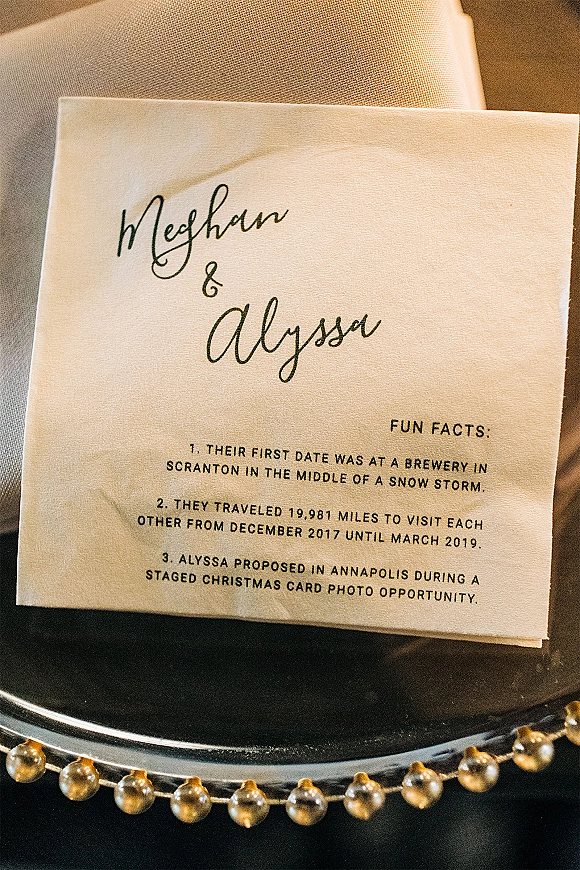 Meghan
&
Alyssa
FUN FACTS:
1. THEIR FIRST DATE WAS AT A BREWERY IN
SCRANTON IN THE MIDDLE OF A SNOW STORM.
2. THEY TRAVELED 19,981 MILES TO VISIT EACH
OTHER FROM DECEMBER 2017 UNTIL MARCH 2019.
3. ALYSSA PROPOSED IN ANNAPOLIS DURING A
STAGED CHRISTMAS CARD PHOTO OPPORTUNITY.